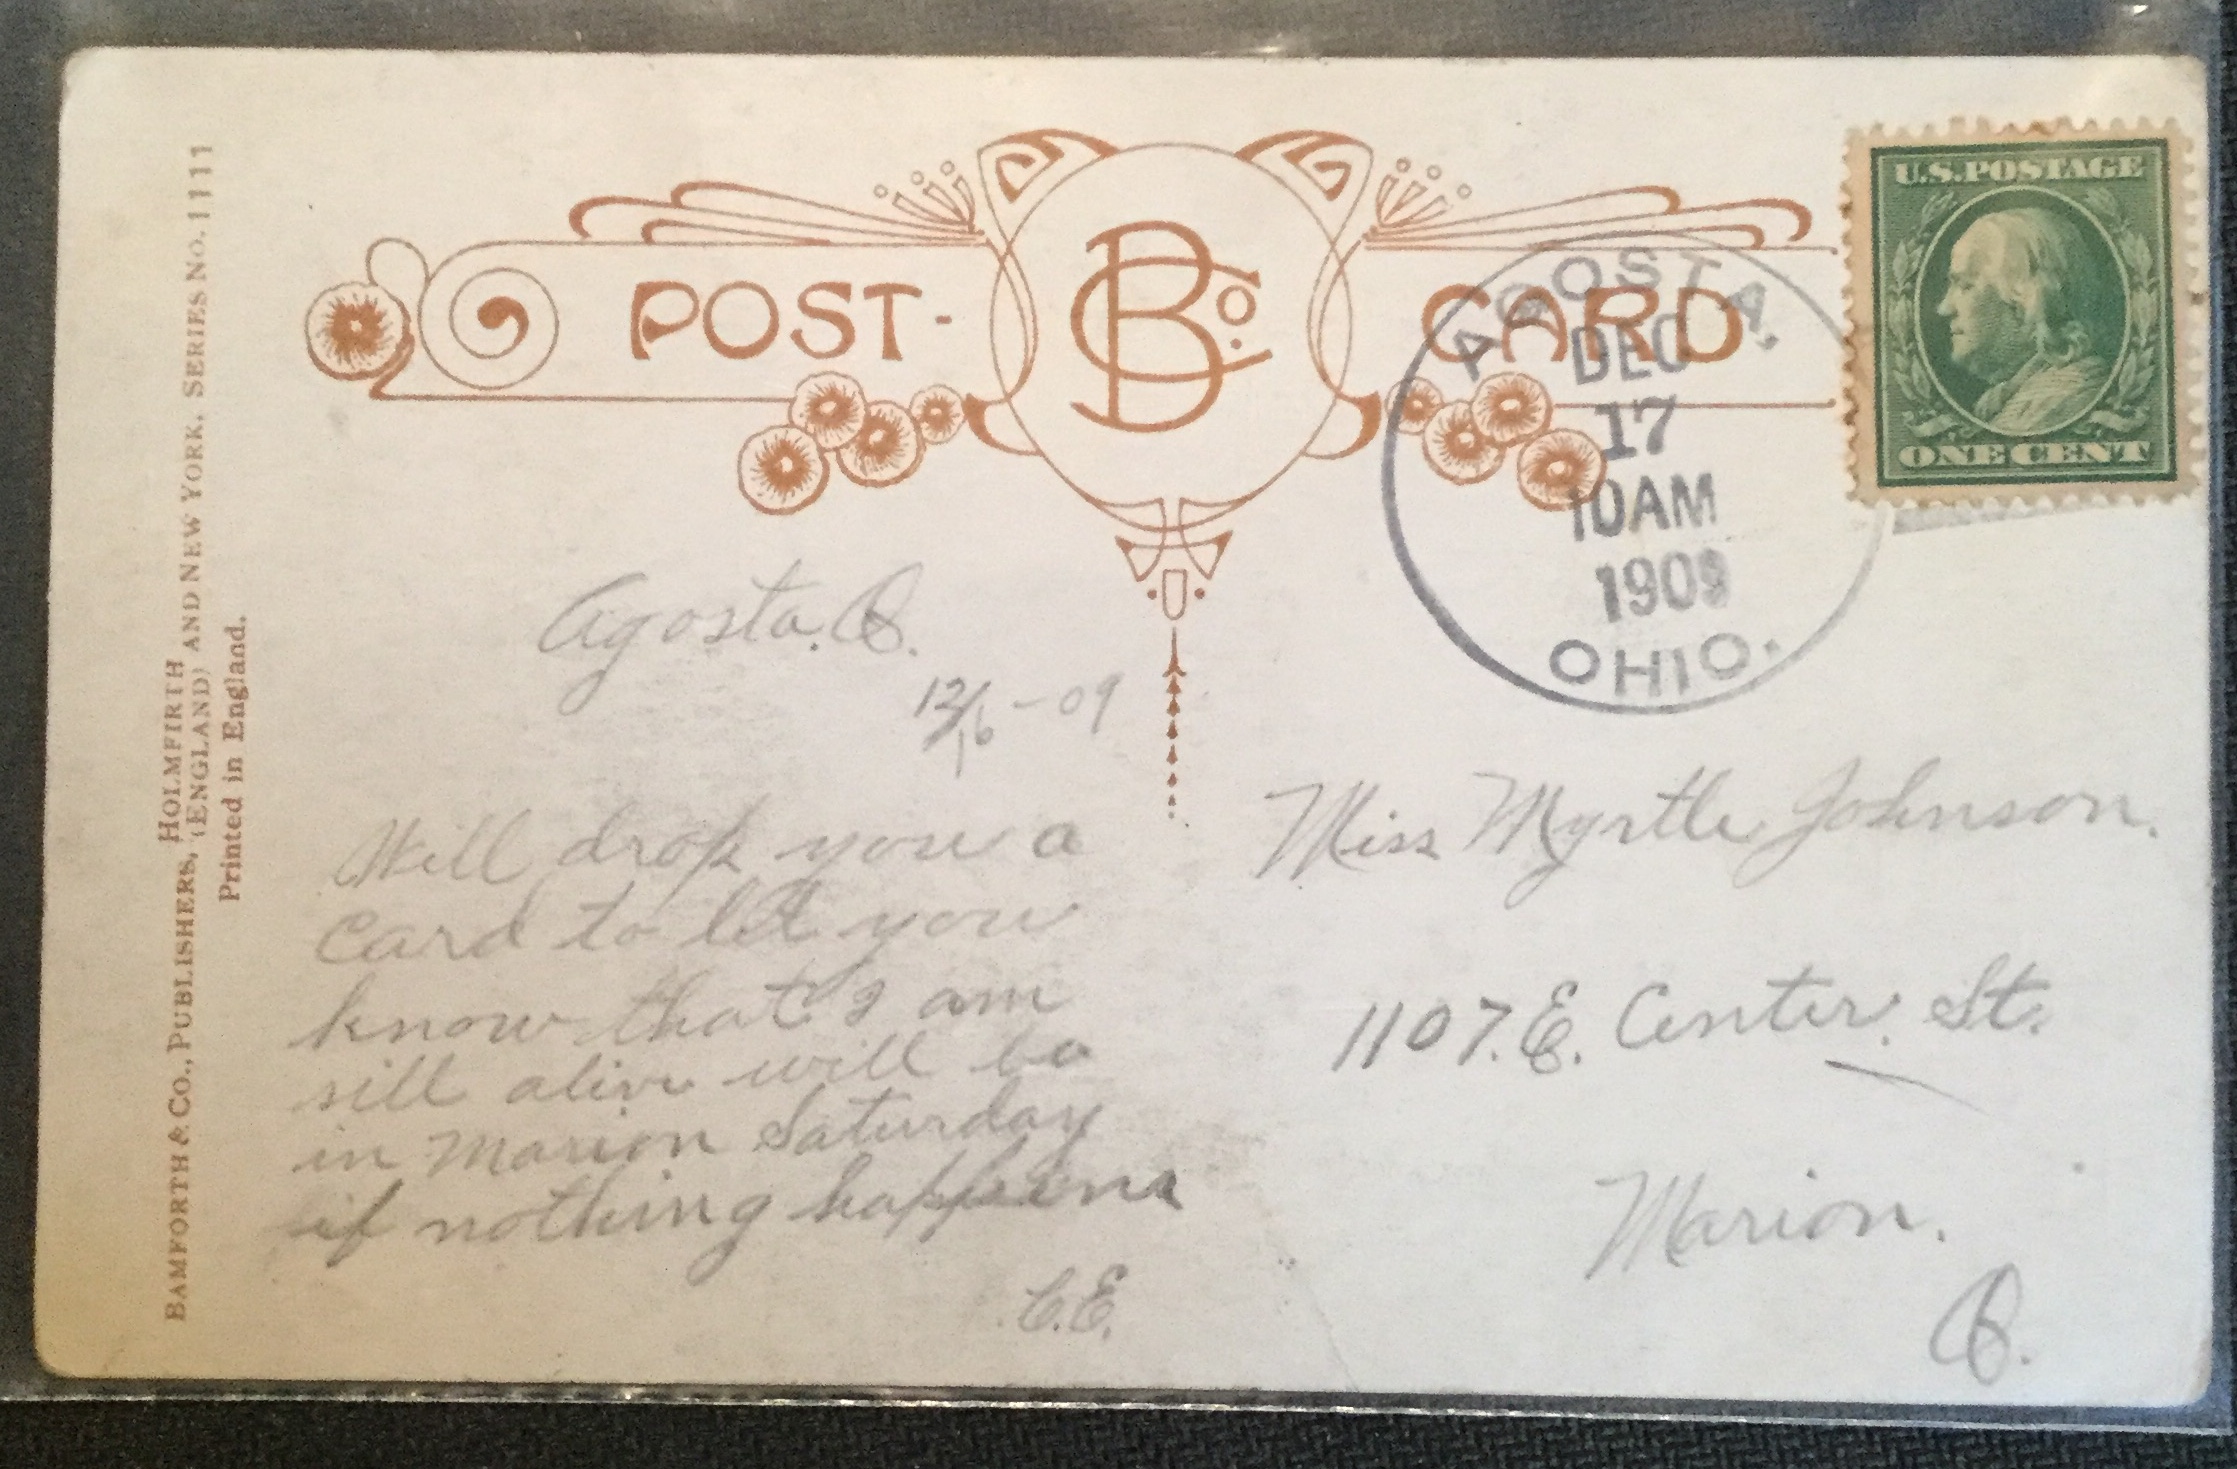 POST-
B Co.
CARD
U.S. POSTAGE
ONE CENT
AGOSTA.
DEC
17
10AM
1909
OHIO.
BAMFORTH & CO., PUBLISHERS, HOLMFIRTH (ENGLAND) AND NEW YORK. SERIES NO. 1111
Printed in England.
Agosta. O.
12/16-09
Will drop you a
card to let you
know that I am
sill alive will be
in Marion Saturday
if nothing happens
C.E.
Miss Myrtle Johnson.
1107. E. Center. St.
Marion.
O.